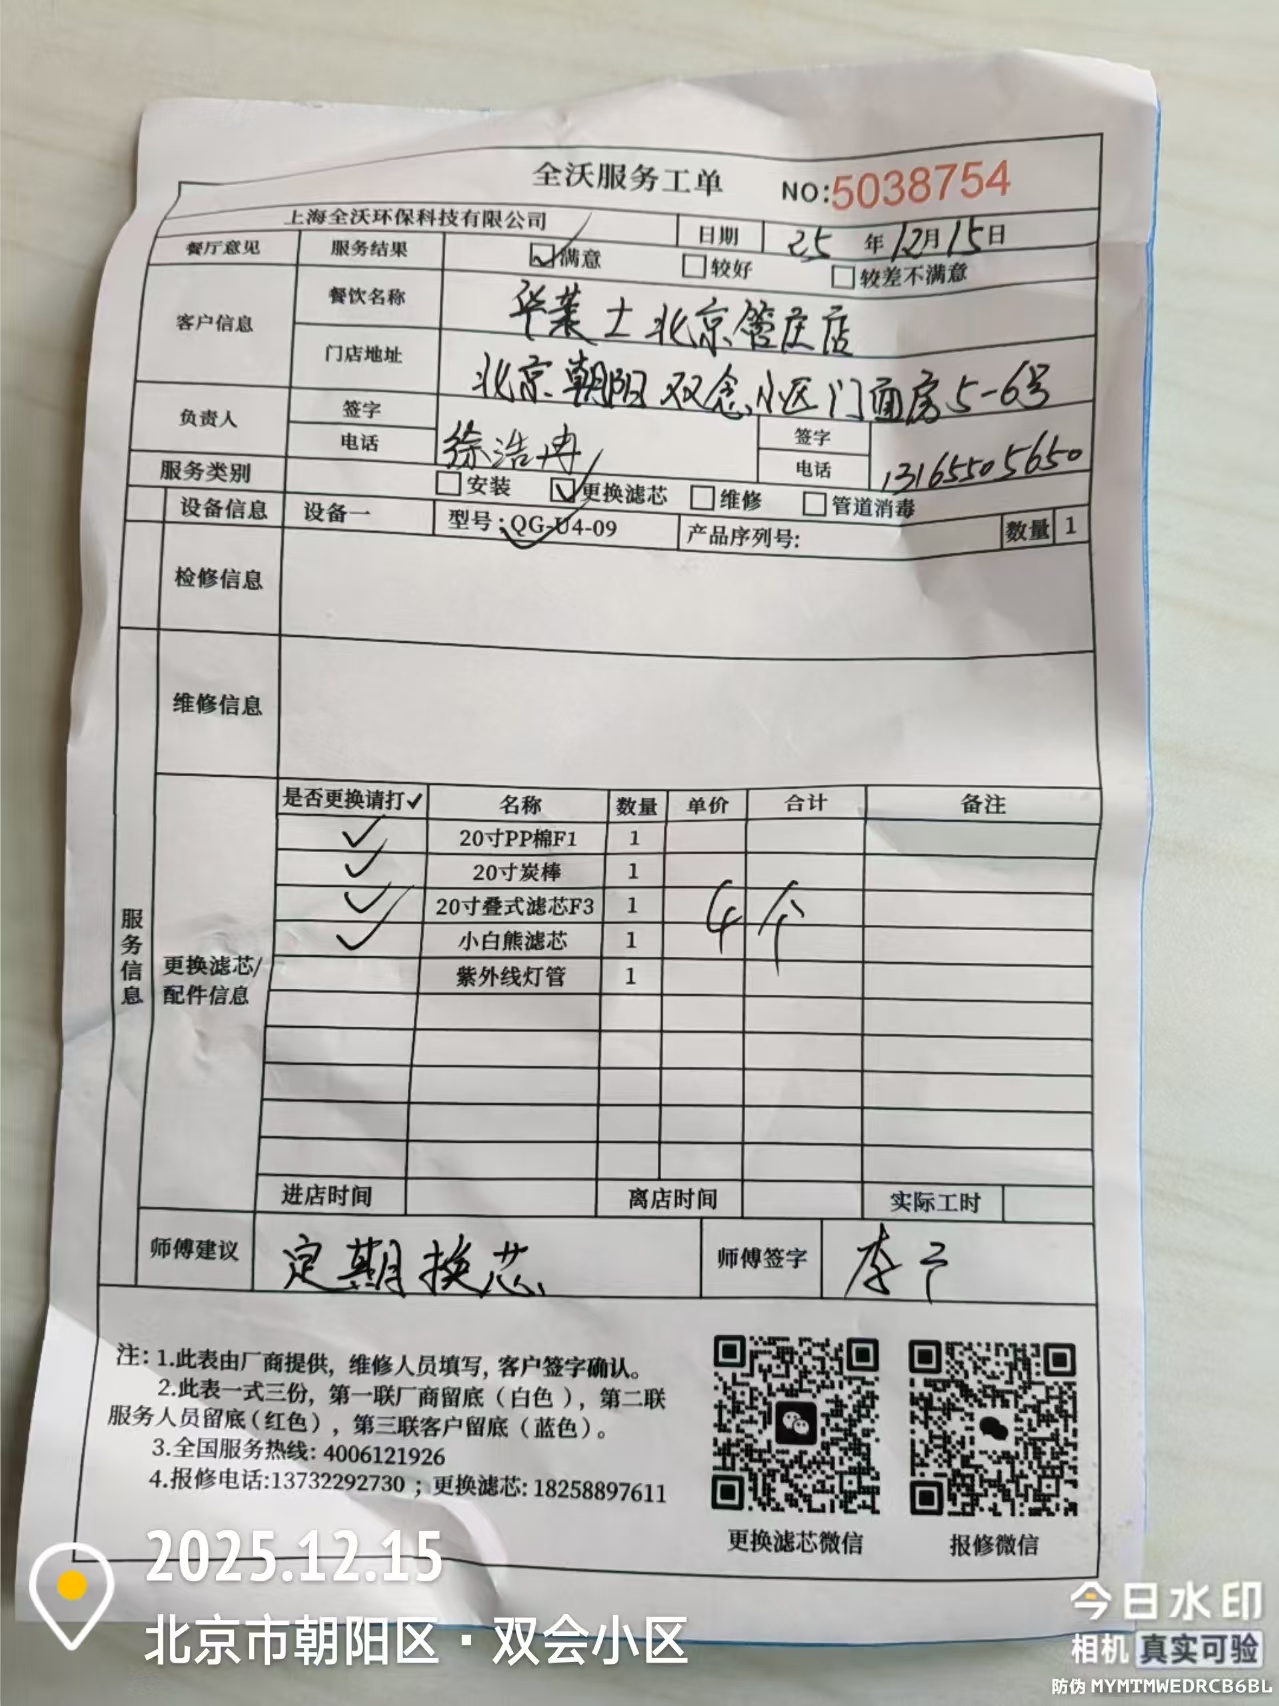 全沃服务工单 NO:5038754
上海全沃环保科技有限公司 日期 25年12月15日
餐厅意见 服务结果 ☑满意 □较好 □较差不满意
客户信息 餐饮名称 华莱士北京管庄店
门店地址 北京朝阳双会小区门面房5-6号
负责人 签字 电话 徐浩冉 签字 电话 13165505650
服务类别 □安装 ☑更换滤芯 □维修 □管道消毒
设备信息 设备一 型号:QG-U4-09 产品序列号: 数量 1
检修信息
维修信息
服务信息
更换滤芯/
配件信息
是否更换请打✓ 名称 数量 单价 合计 备注
✓ 20寸PP棉F1 1
✓ 20寸炭棒 1
✓ 20寸叠式滤芯F3 1 4个
✓ 小白熊滤芯 1
紫外线灯管 1
进店时间 离店时间 实际工时
师傅建议 定期换芯 师傅签字 李宁
注:1.此表由厂商提供,维修人员填写,客户签字确认。
2.此表一式三份,第一联厂商留底(白色),第二联
服务人员留底(红色),第三联客户留底(蓝色)。
3.全国服务热线:4006121926
4.报修电话:13732292730;更换滤芯:18258897611
更换滤芯微信 报修微信
2025.12.15
北京市朝阳区·双会小区
今日水印
相机 真实可验
防伪 MYMTMWEDRCB6BL